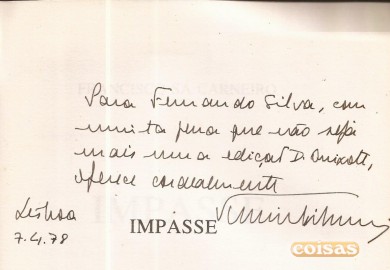 Para Fernando Silva, com
muita pena que não seja
mais uma edição D. Quixote,
oferece cordealmente
Lisboa
7.4.78
IMPASSE
coisas